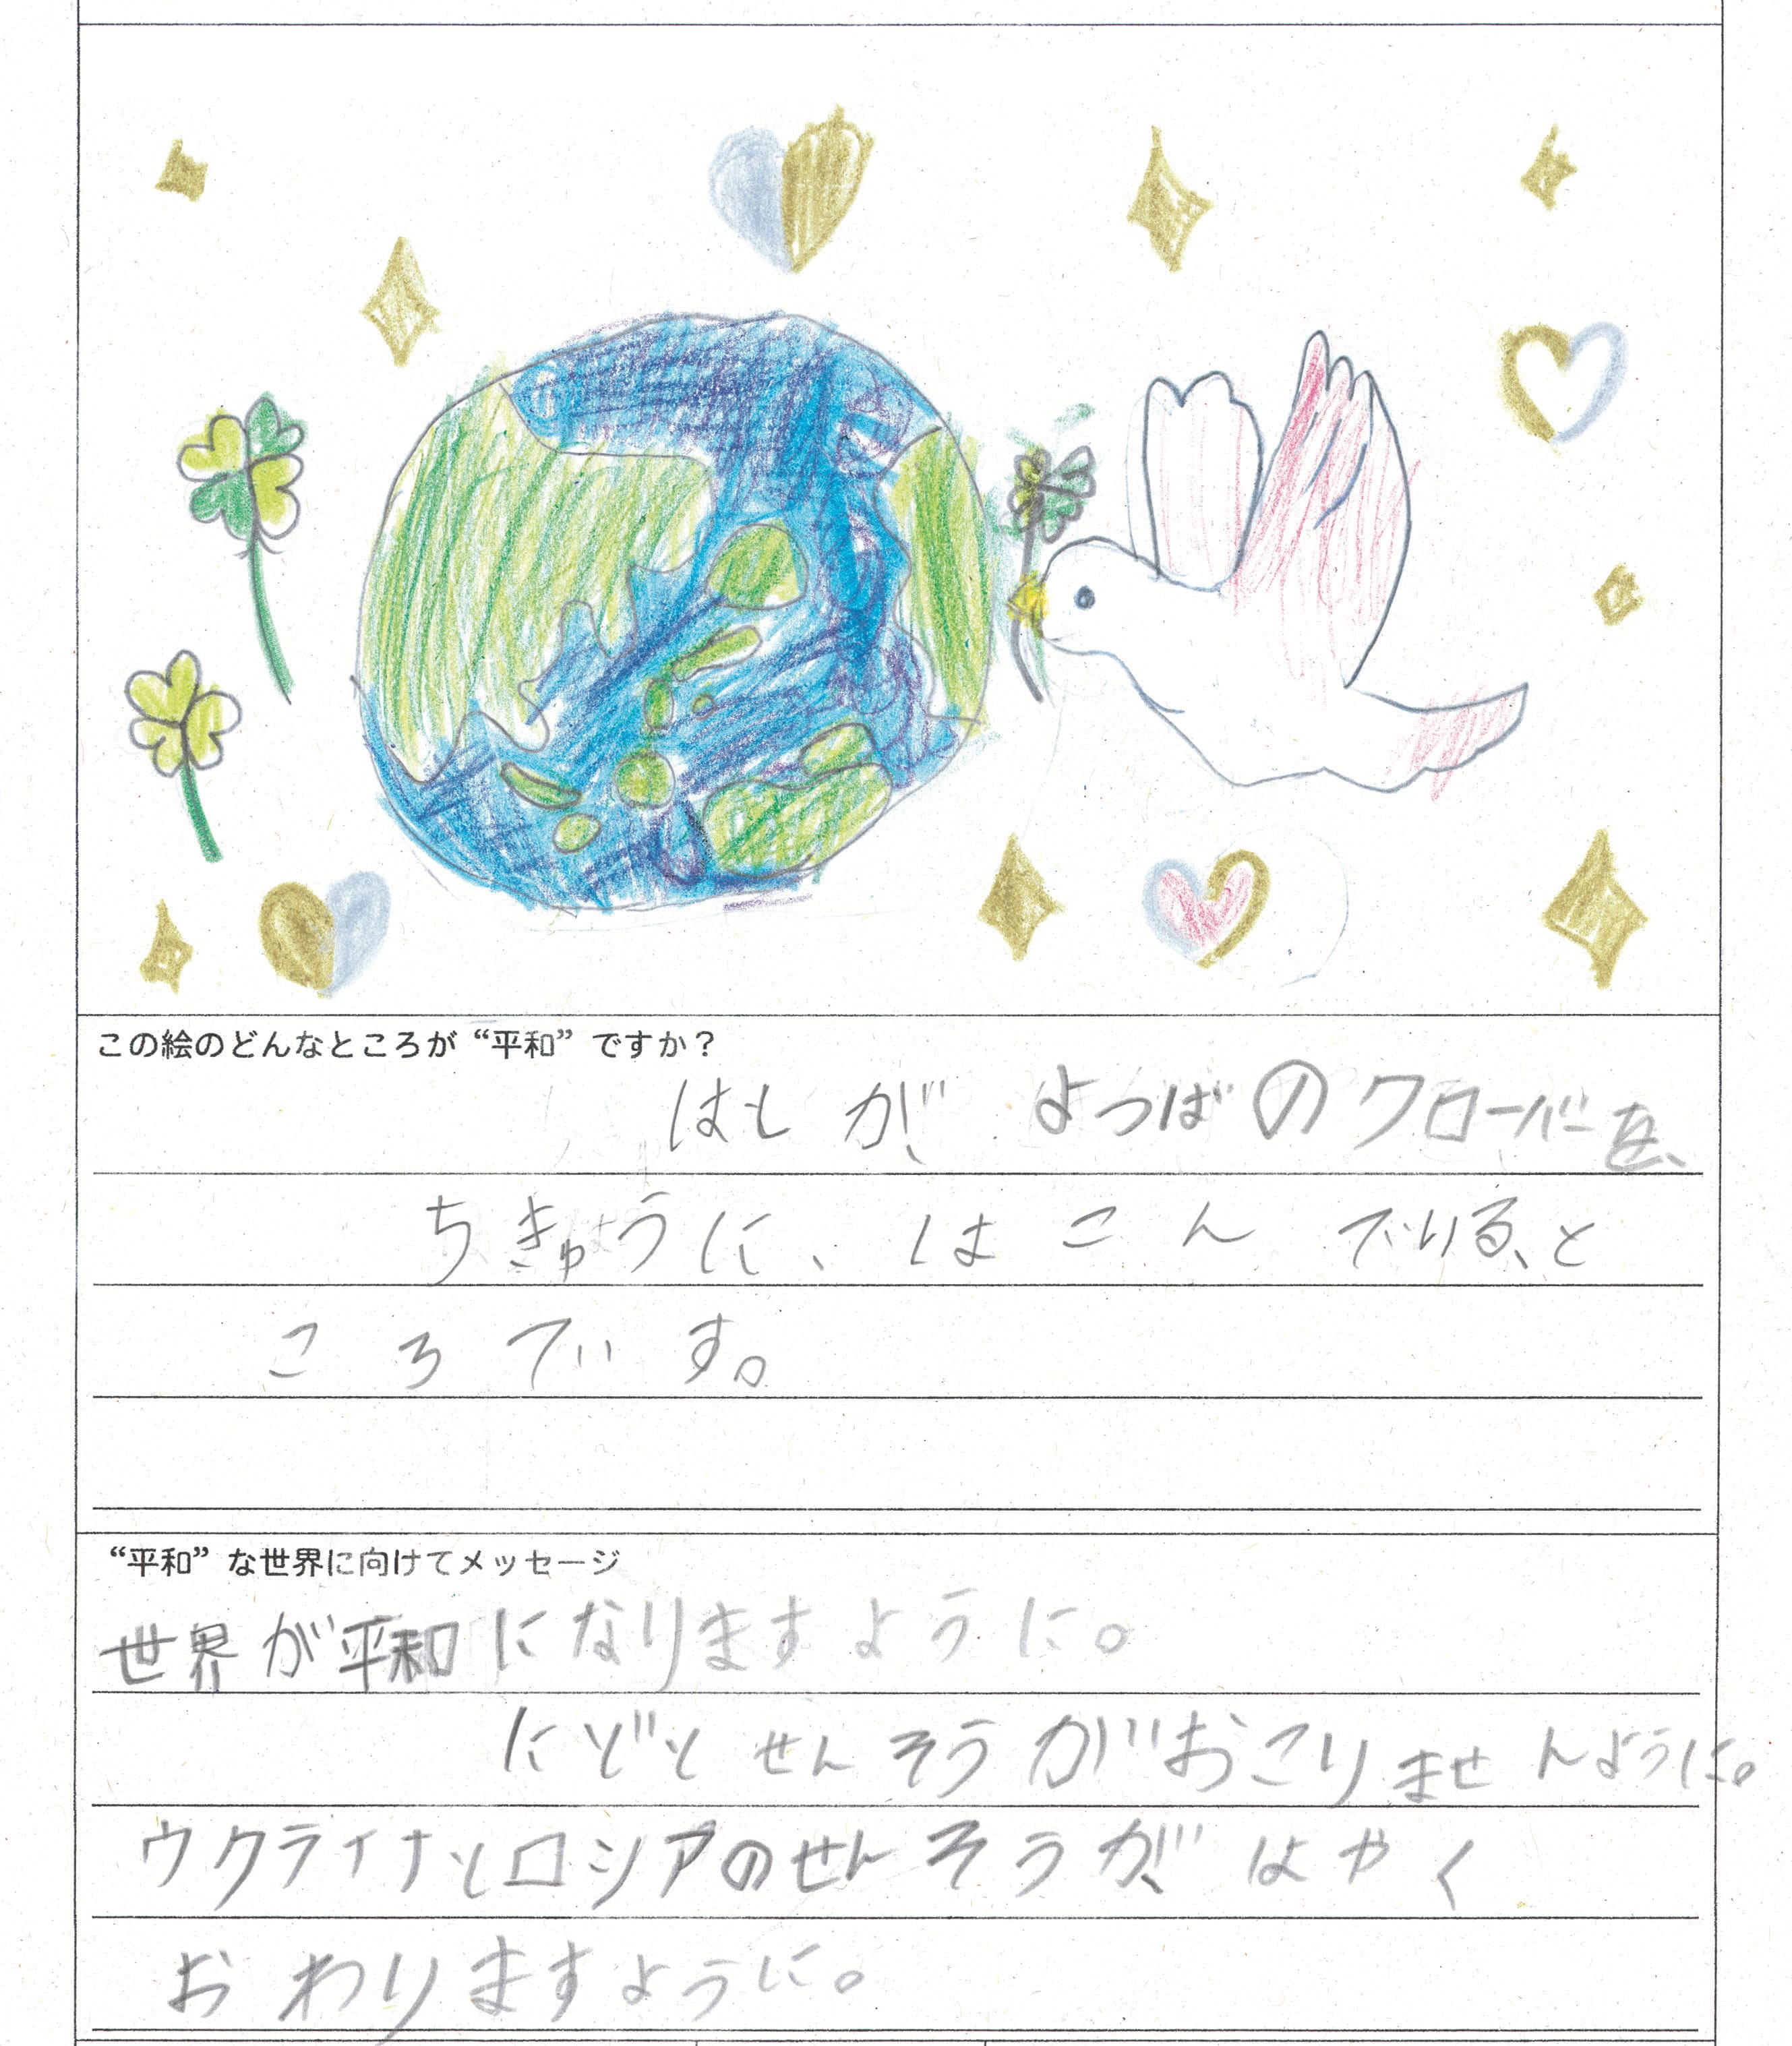 この絵のどんなところが“平和”ですか？
はとが、よつばのクローバーを、
ちきゅうに、はこんでいる、と
ころです。
“平和”な世界に向けてメッセージ
世界が平和になりますように。
にどとせんそうがおこりませんように。
ウクライナとロシアのせんそうが、はやく
おわりますように。